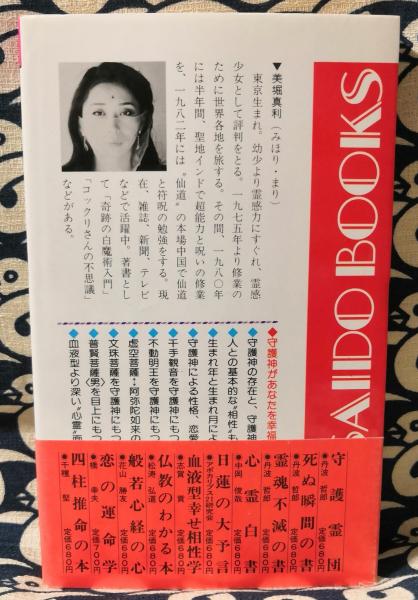 ▼美堀真利(みほり・まり)
東京生まれ。幼少より霊感力にすぐれ、霊感
少女として評判をとる。一九七五年より修業の
ために世界各地を旅する。その間、一九八〇年
には半年間、聖地インドで超能力と呪いの修業
を、一九八二年には〝仙道〟の本場中国で仙道
と符呪の勉強をする。現
在、雑誌、新聞、テレビ
などで活躍中。著書とし
て「奇跡の白魔術入門」
「コックリさんの不思議」
などがある。
SAIDO BOOKS
◆守護神があなたを幸福
◆守護神の存在と、守護神
◆人との基本的な〝相性〟も
◆生まれ年と生まれ月によ
◆守護神による性格、恋愛
◆千手観音を守護神にもつ
◆不動明王を守護神にもつ
◆虚空菩薩・阿弥陀如来の
◆文珠菩薩を守護神にもつ
◆普賢菩薩〈男〉を目上にもつ
◆血液型より深い〝心霊〟面
守護霊団
●丹波哲郎 定価680円
死ぬ瞬間の書
●丹波哲郎 定価680円
霊魂不滅の書
●丹波哲郎 定価680円
心霊白書
●中岡俊哉 定価680円
日蓮の大予言
●アポカリプス21研究会 定価680円
血液型幸せ相性学
●志賀貢 定価680円
仏教のわかる本
●松濤弘道 定価680円
般若心経の心
●花山勝友 定価680円
恋の運命学
●橋幸夫 定価700円
四柱推命の本
●千種堅 定価680円